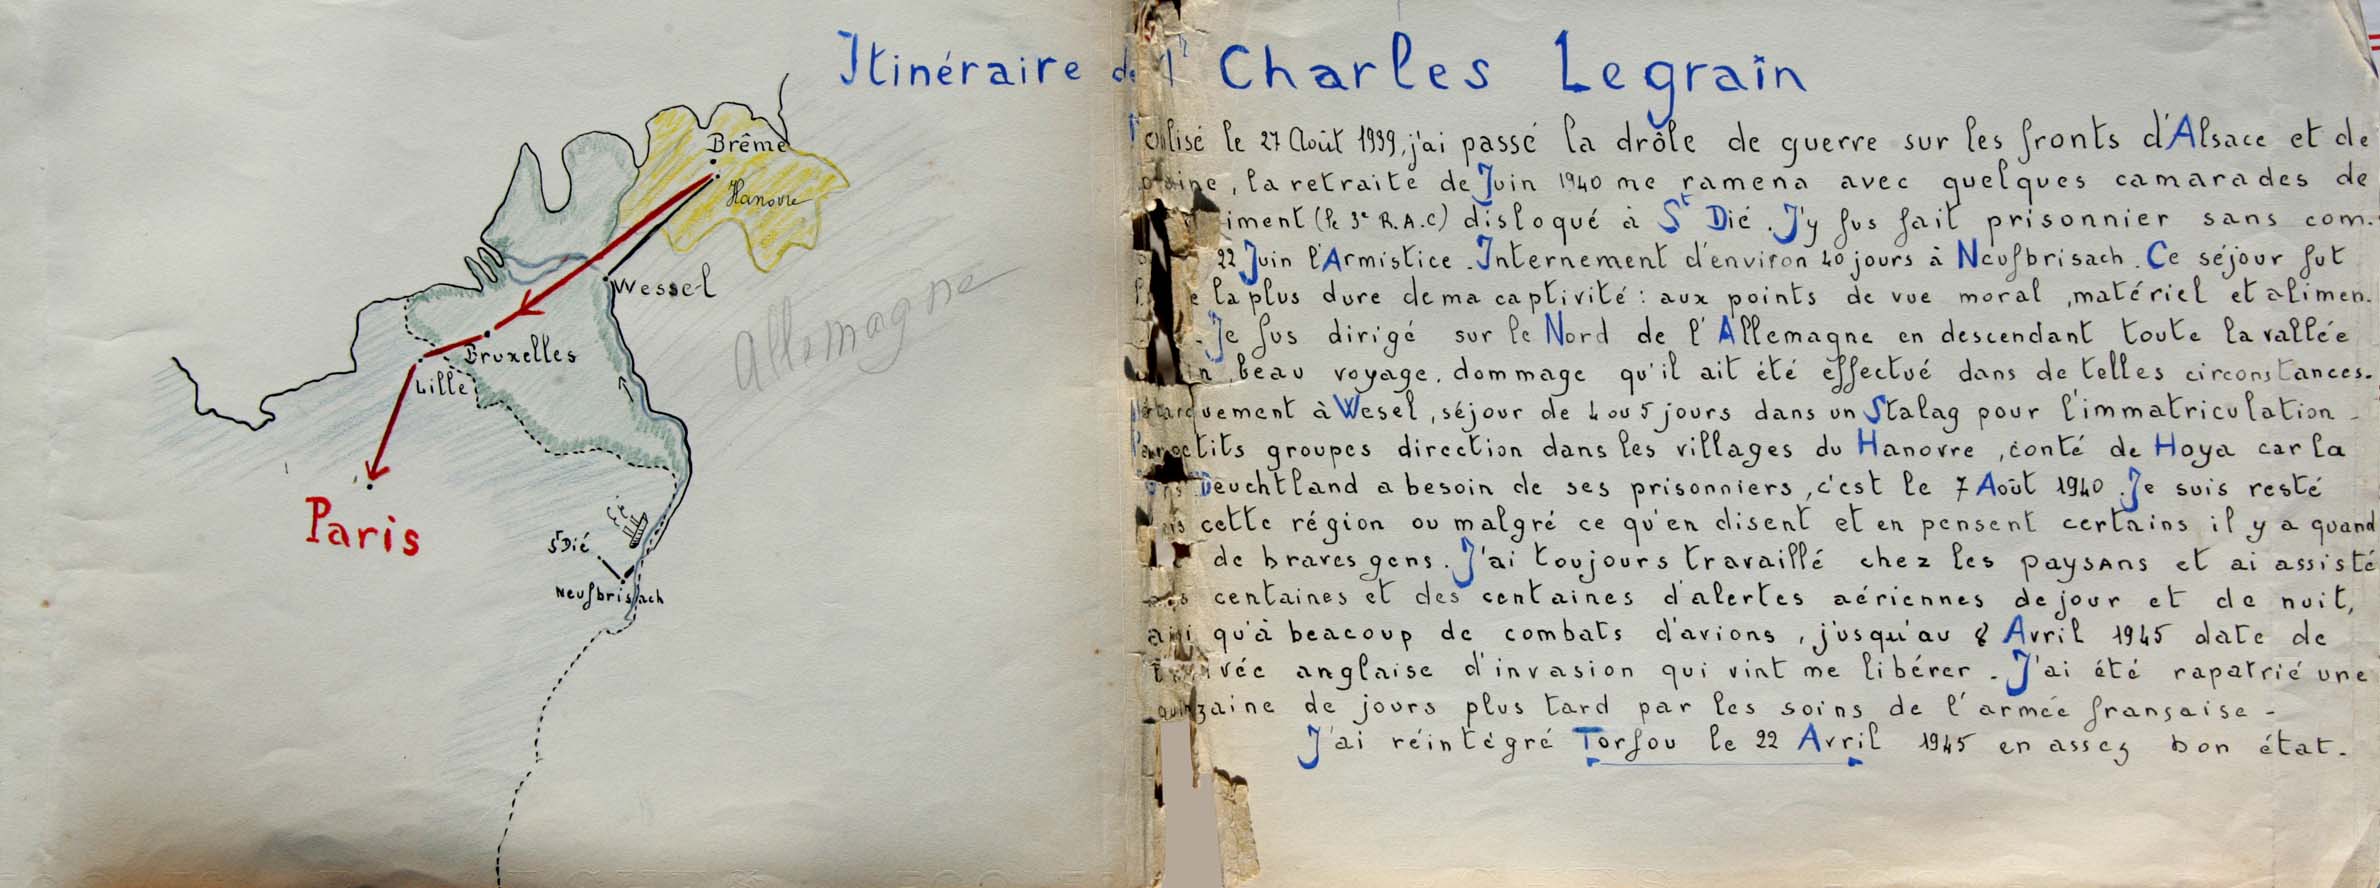 Itinéraire de Charles Legrain
Brême
Hanovre
Wessel
Allemagne
Bruxelles
Lille
Paris
St Dié
Neufbrisach
le 27 Août 1939, j'ai passé la drôle de guerre sur les fronts d'Alsace et de
, la retraite de Juin 1940 me ramena avec quelques camarades de
iment (le 3e R.A.C) disloqué à St Dié. J'y fus fait prisonnier sans com.
22 Juin l'Armistice. Internement d'environ 40 jours à Neufbrisach. Ce séjour fut
la plus dure de ma captivité : aux points de vue moral, matériel et alimen.
Je fus dirigé sur le Nord de l'Allemagne en descendant toute la vallée
beau voyage, dommage qu'il ait été effectué dans de telles circonstances.
uement à Wesel, séjour de 4 ou 5 jours dans un Stalag pour l'immatriculation -
tits groupes direction dans les villages du Hanovre, conté de Hoya car la
Deuchtland a besoin de ses prisonniers, c'est le 7 Août 1940. Je suis resté
cette région ou malgré ce qu'en disent et en pensent certains il y a quand
de braves gens. J'ai toujours travaillé chez les paysans et ai assisté
centaines et des centaines d'alertes aériennes de jour et de nuit,
qu'à beacoup de combats d'avions, j'usqu'au 8 Avril 1945 date de
ivée anglaise d'invasion qui vint me libérer. J'ai été rapatrié une
quinzaine de jours plus tard par les soins de l'armée française -
J'ai réintégré Torfou le 22 Avril 1945 en assez bon état.